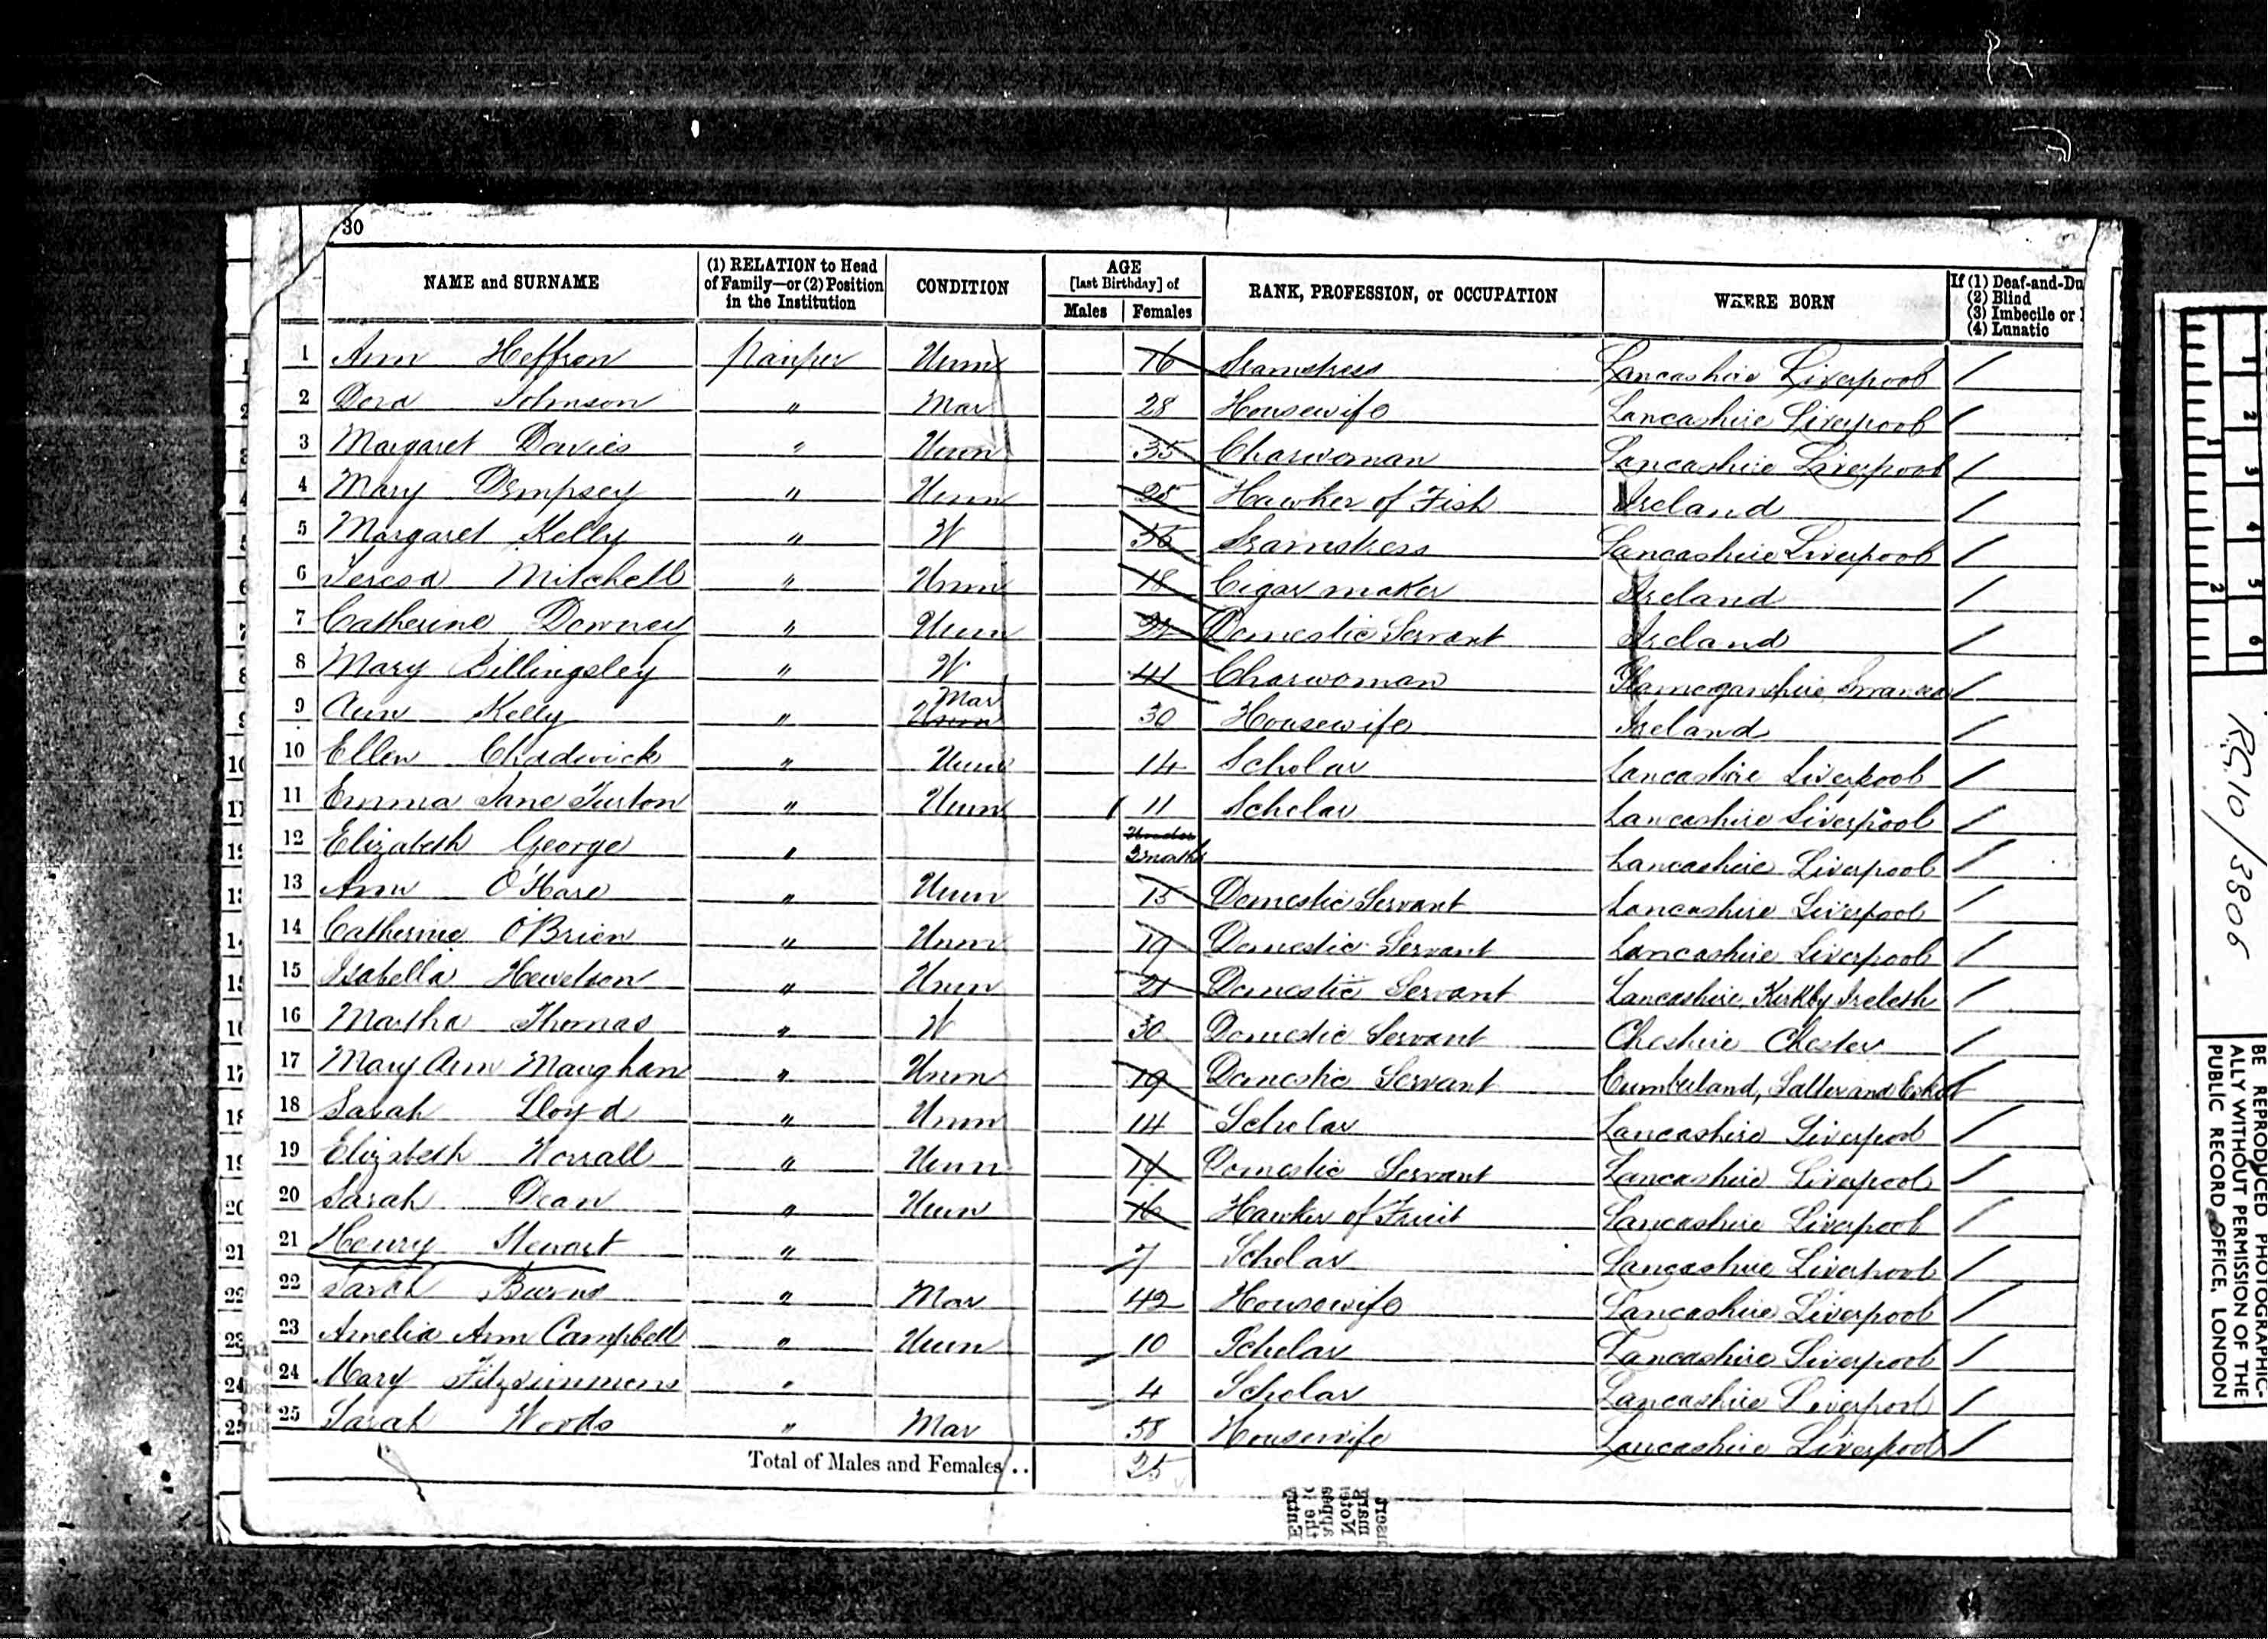 30
NAME and SURNAME (1) RELATION to Head of Family—or (2) Position in the Institution CONDITION AGE [last Birthday] of Males Females RANK, PROFESSION, or OCCUPATION WHERE BORN If (1) Deaf-and-Du (2) Blind (3) Imbecile or (4) Lunatic
1 Ann Heffron Pauper Unm 16 Seamstress Lancashire Liverpool /
2 Dora Johnson " Mar 28 Housewife Lancashire Liverpool /
3 Margaret Davies " Unm 35 Charwoman Lancashire Liverpool /
4 Mary Dempsey " Unm 28 Hawker of Fish Ireland /
5 Margaret Kelly " W Seamstress Lancashire Liverpool /
6 Teresa Mitchell " Unm 18 Cigar maker Ireland /
7 Catherine Downey " Unm Domestic Servant Ireland /
8 Mary Billingsley " W 41 Charwoman Glamoganshire Swansea /
9 Ann Kelly " Unm Mar 30 Housewife Ireland /
10 Ellen Chadwick " Unm 14 Scholar Lancashire Liverpool /
11 Emma Jane Turton " Unm 11 Scholar Lancashire Liverpool /
12 Elizabeth George " Under 2 months Lancashire Liverpool /
13 Ann O'Hare " Unm 15 Domestic Servant Lancashire Liverpool /
14 Catherine O'Brien " Unm 19 Domestic Servant Lancashire Liverpool /
15 Isabella Hewetson " Unm 21 Domestic Servant Lancashire, Kirkby Ireleth /
16 Martha Thomas " W 30 Domestic Servant Cheshire Chester /
17 Mary Ann Maughan " Unm 19 Domestic Servant Cumberland, Salter and Eskat /
18 Sarah Lloyd " Unm 14 Scholar Lancashire Liverpool /
19 Elizabeth Worrall " Unm Domestic Servant Lancashire Liverpool /
20 Sarah Dean " Unm 16 Hawker of Fruit Lancashire Liverpool /
21 Henry Stewart " 7 Scholar Lancashire Liverpool /
22 Sarah Burns " Mar 42 Housewife Lancashire Liverpool /
23 Amelia Ann Campbell " Unm 10 Scholar Lancashire Liverpool /
24 Mary Fitzsimmons " 4 Scholar Lancashire Liverpool /
25 Sarah Woods " Mar 38 Housewife Lancashire Liverpool /
Total of Males and Females .. 25
R.G.10/3806
BE REPRODUCED PHOTOGRAPHIC-
ALLY WITHOUT PERMISSION OF THE
PUBLIC RECORD OFFICE, LONDON